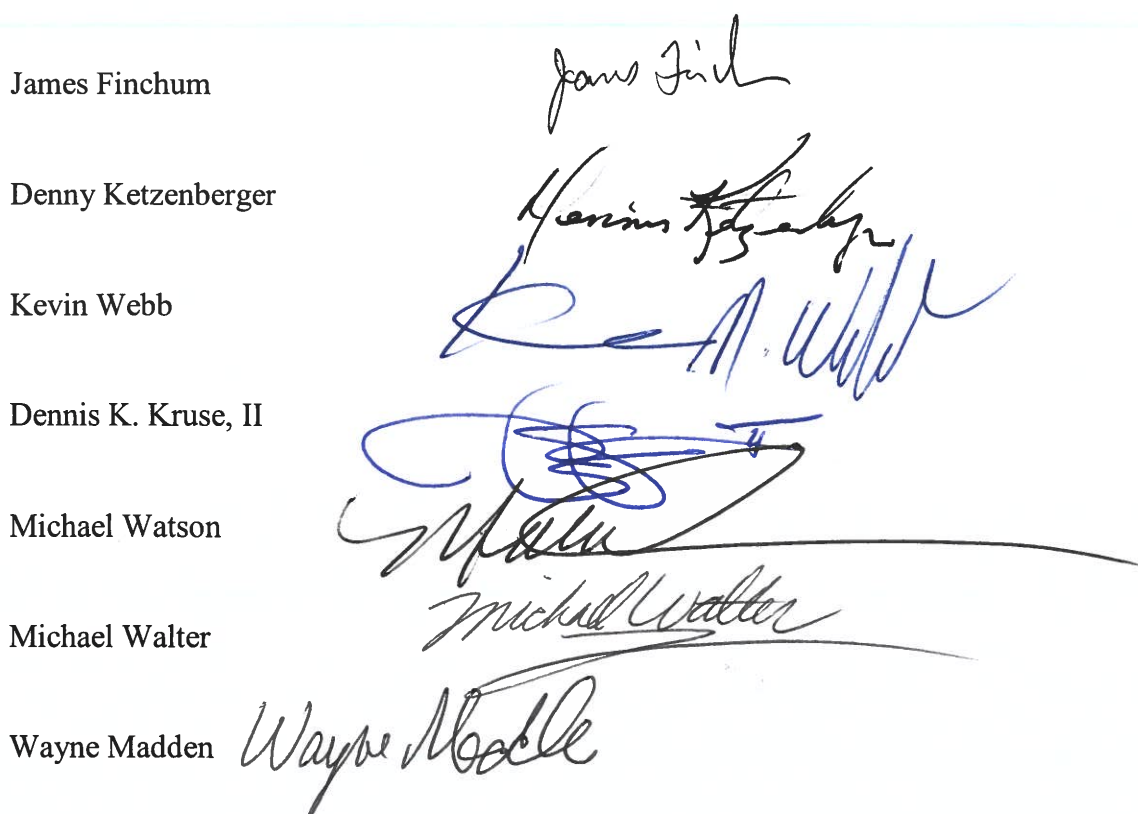 James Finchum James Finch
Denny Ketzenberger Dennis Ketzenberger
Kevin Webb M. Webb
Dennis K. Kruse, II II
Michael Watson
Michael Walter Michael Walter
Wayne Madden Wayne Madde